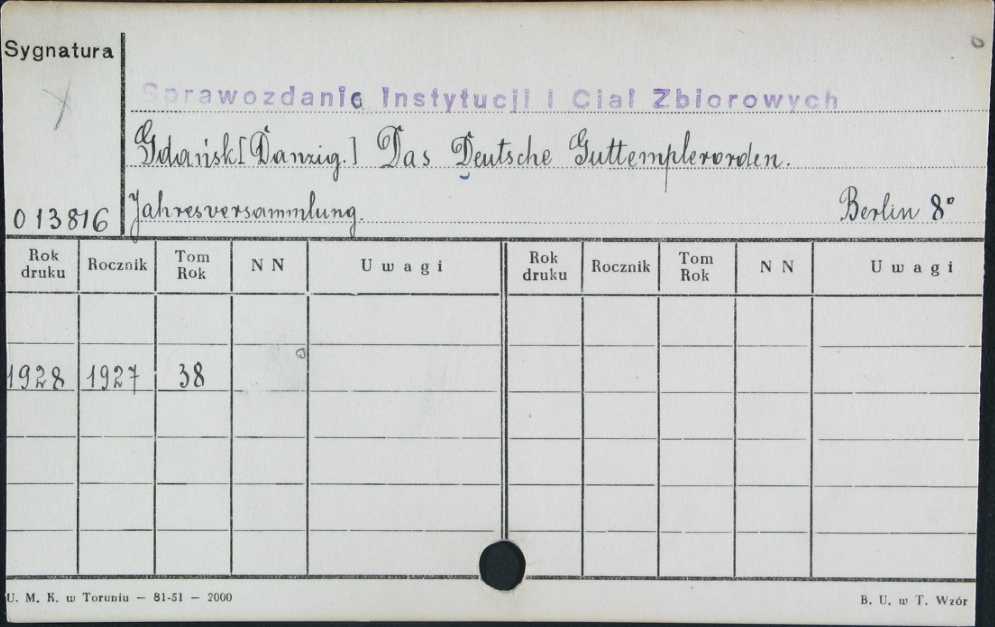 Sygnatura
Sprawozdanie Instytucji i Ciał Zbiorowych
Gdańsk [Danzig.] Das Deutsche Guttemplerorden.
013816 Jahresversammlung. Berlin 8°
Rok druku Rocznik Tom Rok N N Uwagi Rok druku Rocznik Tom Rok N N Uwagi
1928 1927 38
U. M. K. w Toruniu — 81-51 — 2000 B. U. w T. Wzór